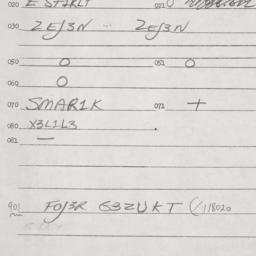 020 E STIRLT 021
030 ZEJ3N ... ZEJ3N
050 O 051 O
060 O
070 SMAR1K 071 +
080 X3L1L3 .
081 —
901 FOJ3R G3ZUKT